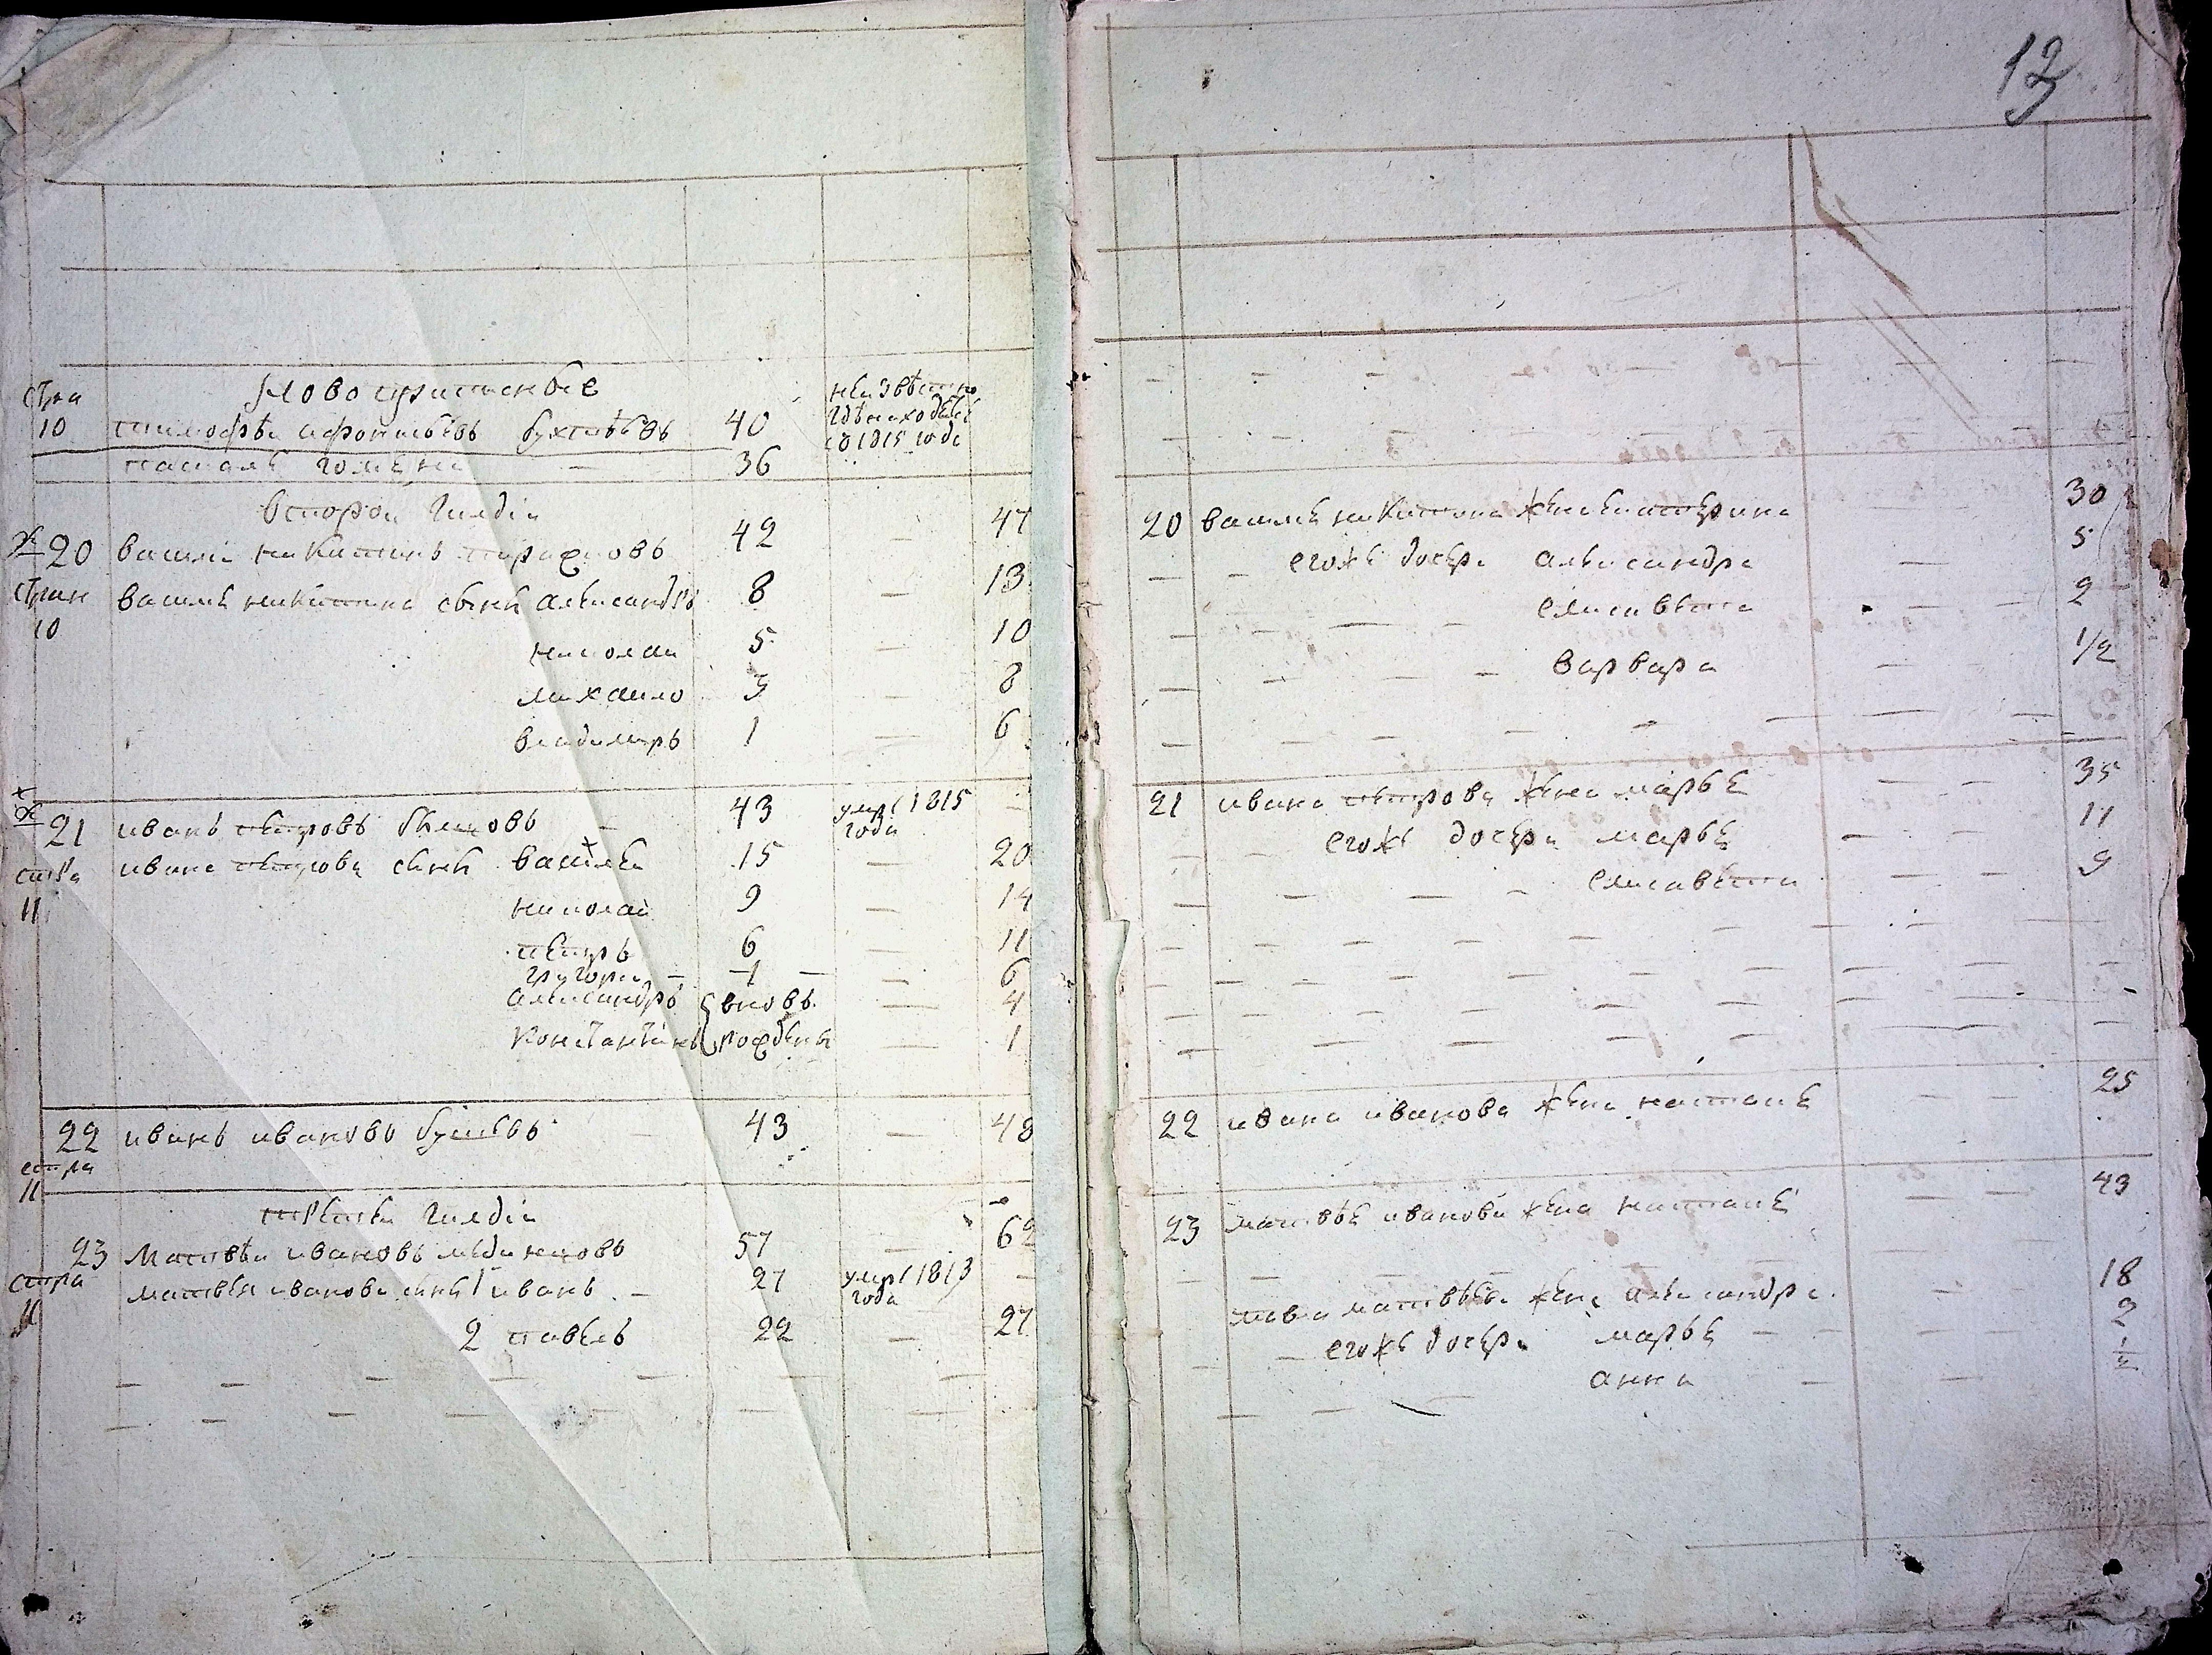 12
стра
10
40
неизвестно
где находится
с 1815 года
36
второй гилдіи
20 василей никитинъ 42 — 47
стран
10
василья никитина сынъ александръ 8 — 13
николай 5 — 10
михаило 3 — 8
владимиръ 1 — 6
21 иванъ петровъ 43 умре 1815 года —
стра
11
ивана петрова сынъ василей 15 — 20
николай 9 — 14
петръ 6 — 11
григорей — 1 — 6
александръ вновь — 4
константинъ рождены — 1
22 иванъ ивановъ 43 — 48
стра
11
третьей гилдіи
23 матвей ивановъ 57 — 62
стра
11
матвея иванова сынъ 1 иванъ — 27 умре 1813 года —
2 павелъ 22 — 27
20 василья никитина жена екатерина 30
егожъ дочери александра — 5
елисавета — 2
варвара — 1/2
21 ивана петрова жена марья — 35
егожъ дочери марья — 11
елисавета — 9
22 ивана иванова жена наталья — 25
23 матвея иванова жена наталья — 43
павла матвеева жена александра — 18
егожъ дочери марья — 2
анна — 1/2